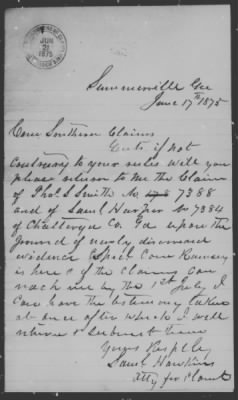 JUN
21
1875
Summerville Ga
June 17th 1875
Com Southern Claims
Gents if not
contrary to your rules will you
please return to me the Claim
of Thos S Smith No 7388
and of Saml Hawkins No 7384
of Chattooga Co. Ga upon the
ground of newly discovered
evidence Spcl Com Ramsey
is here & if the claims can
reach me by the 1st July I
can have the testimony taken
at once after which I will
return & submit them
Yours Respfly
Saml Hawkins
Atty for Claimt